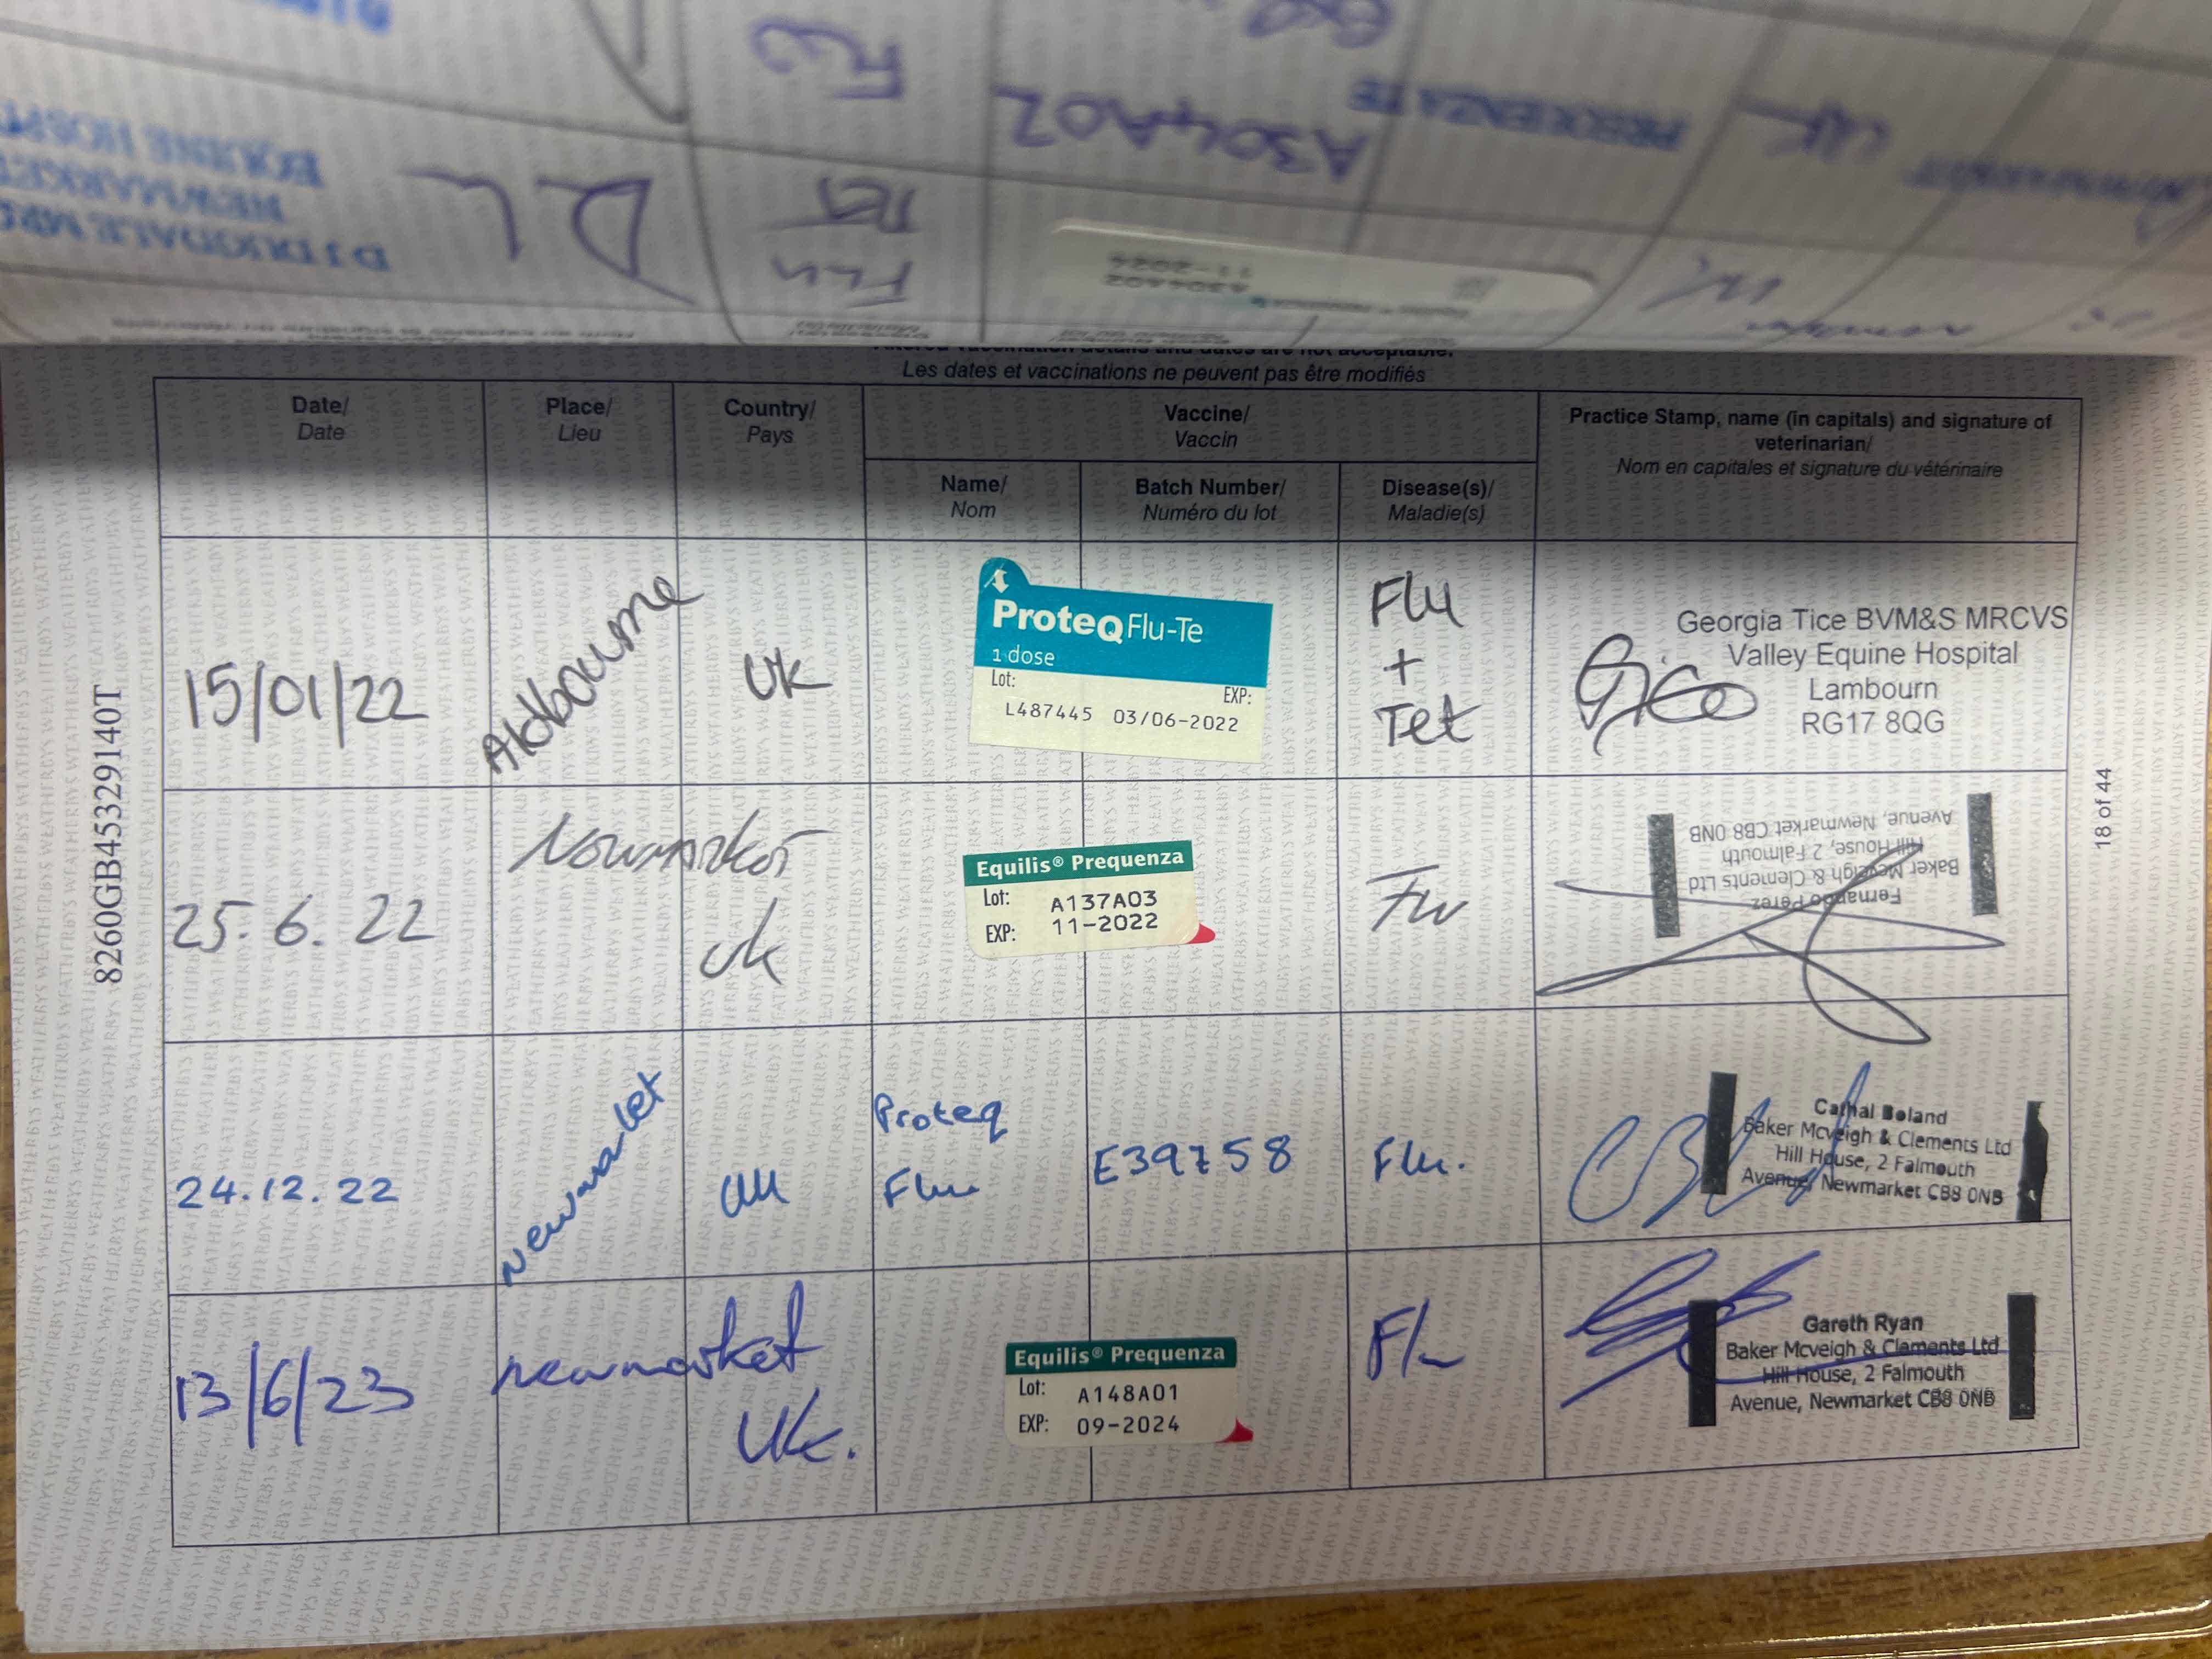 D J DUGDALE MRCVS
NEWMARKET
EQUINE HOSP
DL
FLU
TET
A304A02
11-2024
UK
Flu
A304A02
PREQUENZA TE
UK
NEWMARKET
Altered vaccination details and dates are not acceptable.
Les dates et vaccinations ne peuvent pas être modifiés
Date/
Date
Place/
Lieu
Country/
Pays
Vaccine/
Vaccin
Name/
Nom
Batch Number/
Numéro du lot
Disease(s)/
Maladie(s)
Practice Stamp, name (in capitals) and signature of
veterinarian/
Nom en capitales et signature du vétérinaire
15/01/22
Aldbourne
UK
ProteQ Flu-Te
1 dose
Lot:
EXP:
L487445 03/06-2022
Flu
+
Tet
Georgia Tice BVM&S MRCVS
Valley Equine Hospital
Lambourn
RG17 8QG
25.6.22
Newmarket
UK
Equilis® Prequenza
Lot: A137A03
EXP: 11-2022
Flu
Fernando Perez
Baker Mcveigh & Clements Ltd
Hill House, 2 Falmouth
Avenue, Newmarket CB8 0NB
24.12.22
Newmarket
UK
Proteq
Flu
E39758
Flu.
Cathal Boland
Baker Mcveigh & Clements Ltd
Hill House, 2 Falmouth
Avenue, Newmarket CB8 0NB
13/6/23
newmarket
UK.
Equilis® Prequenza
Lot: A148A01
EXP: 09-2024
Flu
Gareth Ryan
Baker Mcveigh & Clements Ltd
Hill House, 2 Falmouth
Avenue, Newmarket CB8 0NB
8260GB45329140T
18 of 44
WEATHERBYS